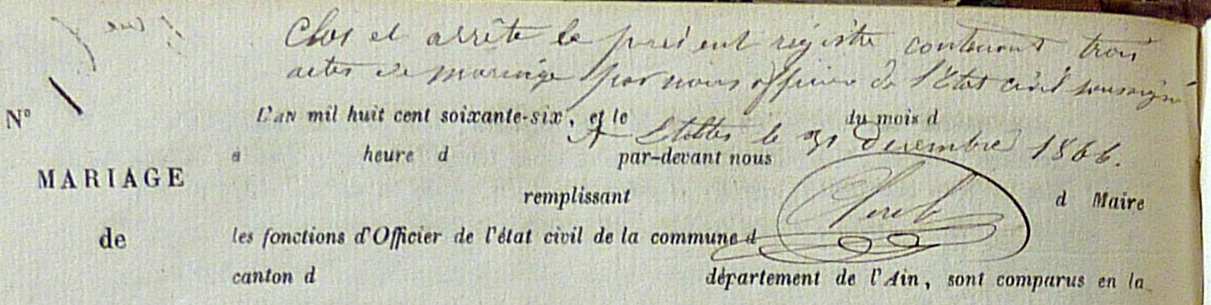 Clos et arrêté le présent régistre contenant trois
actes de mariage par nous officier de l'État civil soussigné
N°
L'AN mil huit cent soixante-six, et le du mois d
A le 31 décembre 1866.
a heure d par-devant nous
MARIAGE
remplissant d Maire
de
les fonctions d'Officier de l'état civil de la commune d
canton d département de l'Ain, sont comparus en la